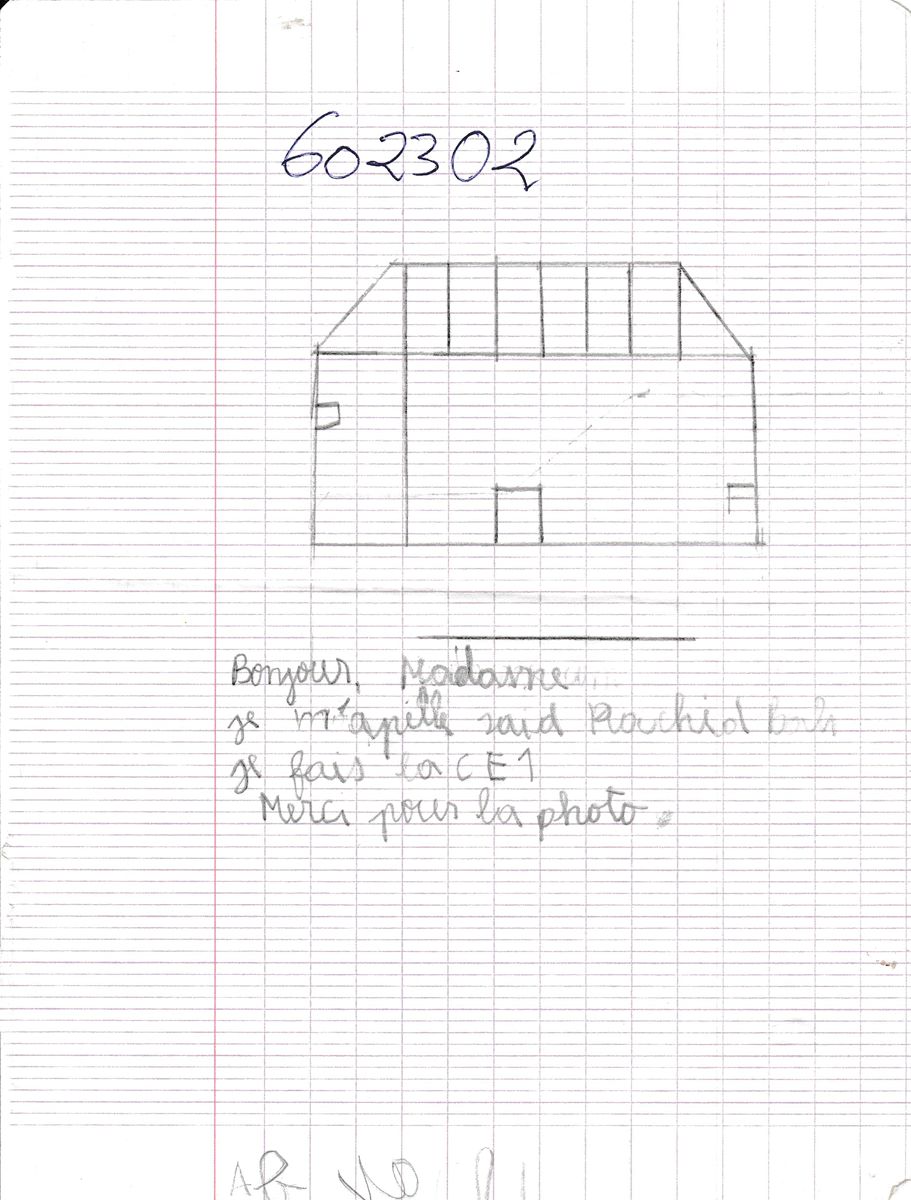 602302
Bonjour, Madame
je m'apelle said Rachid
je fais la CE1
Merci pour la photo.